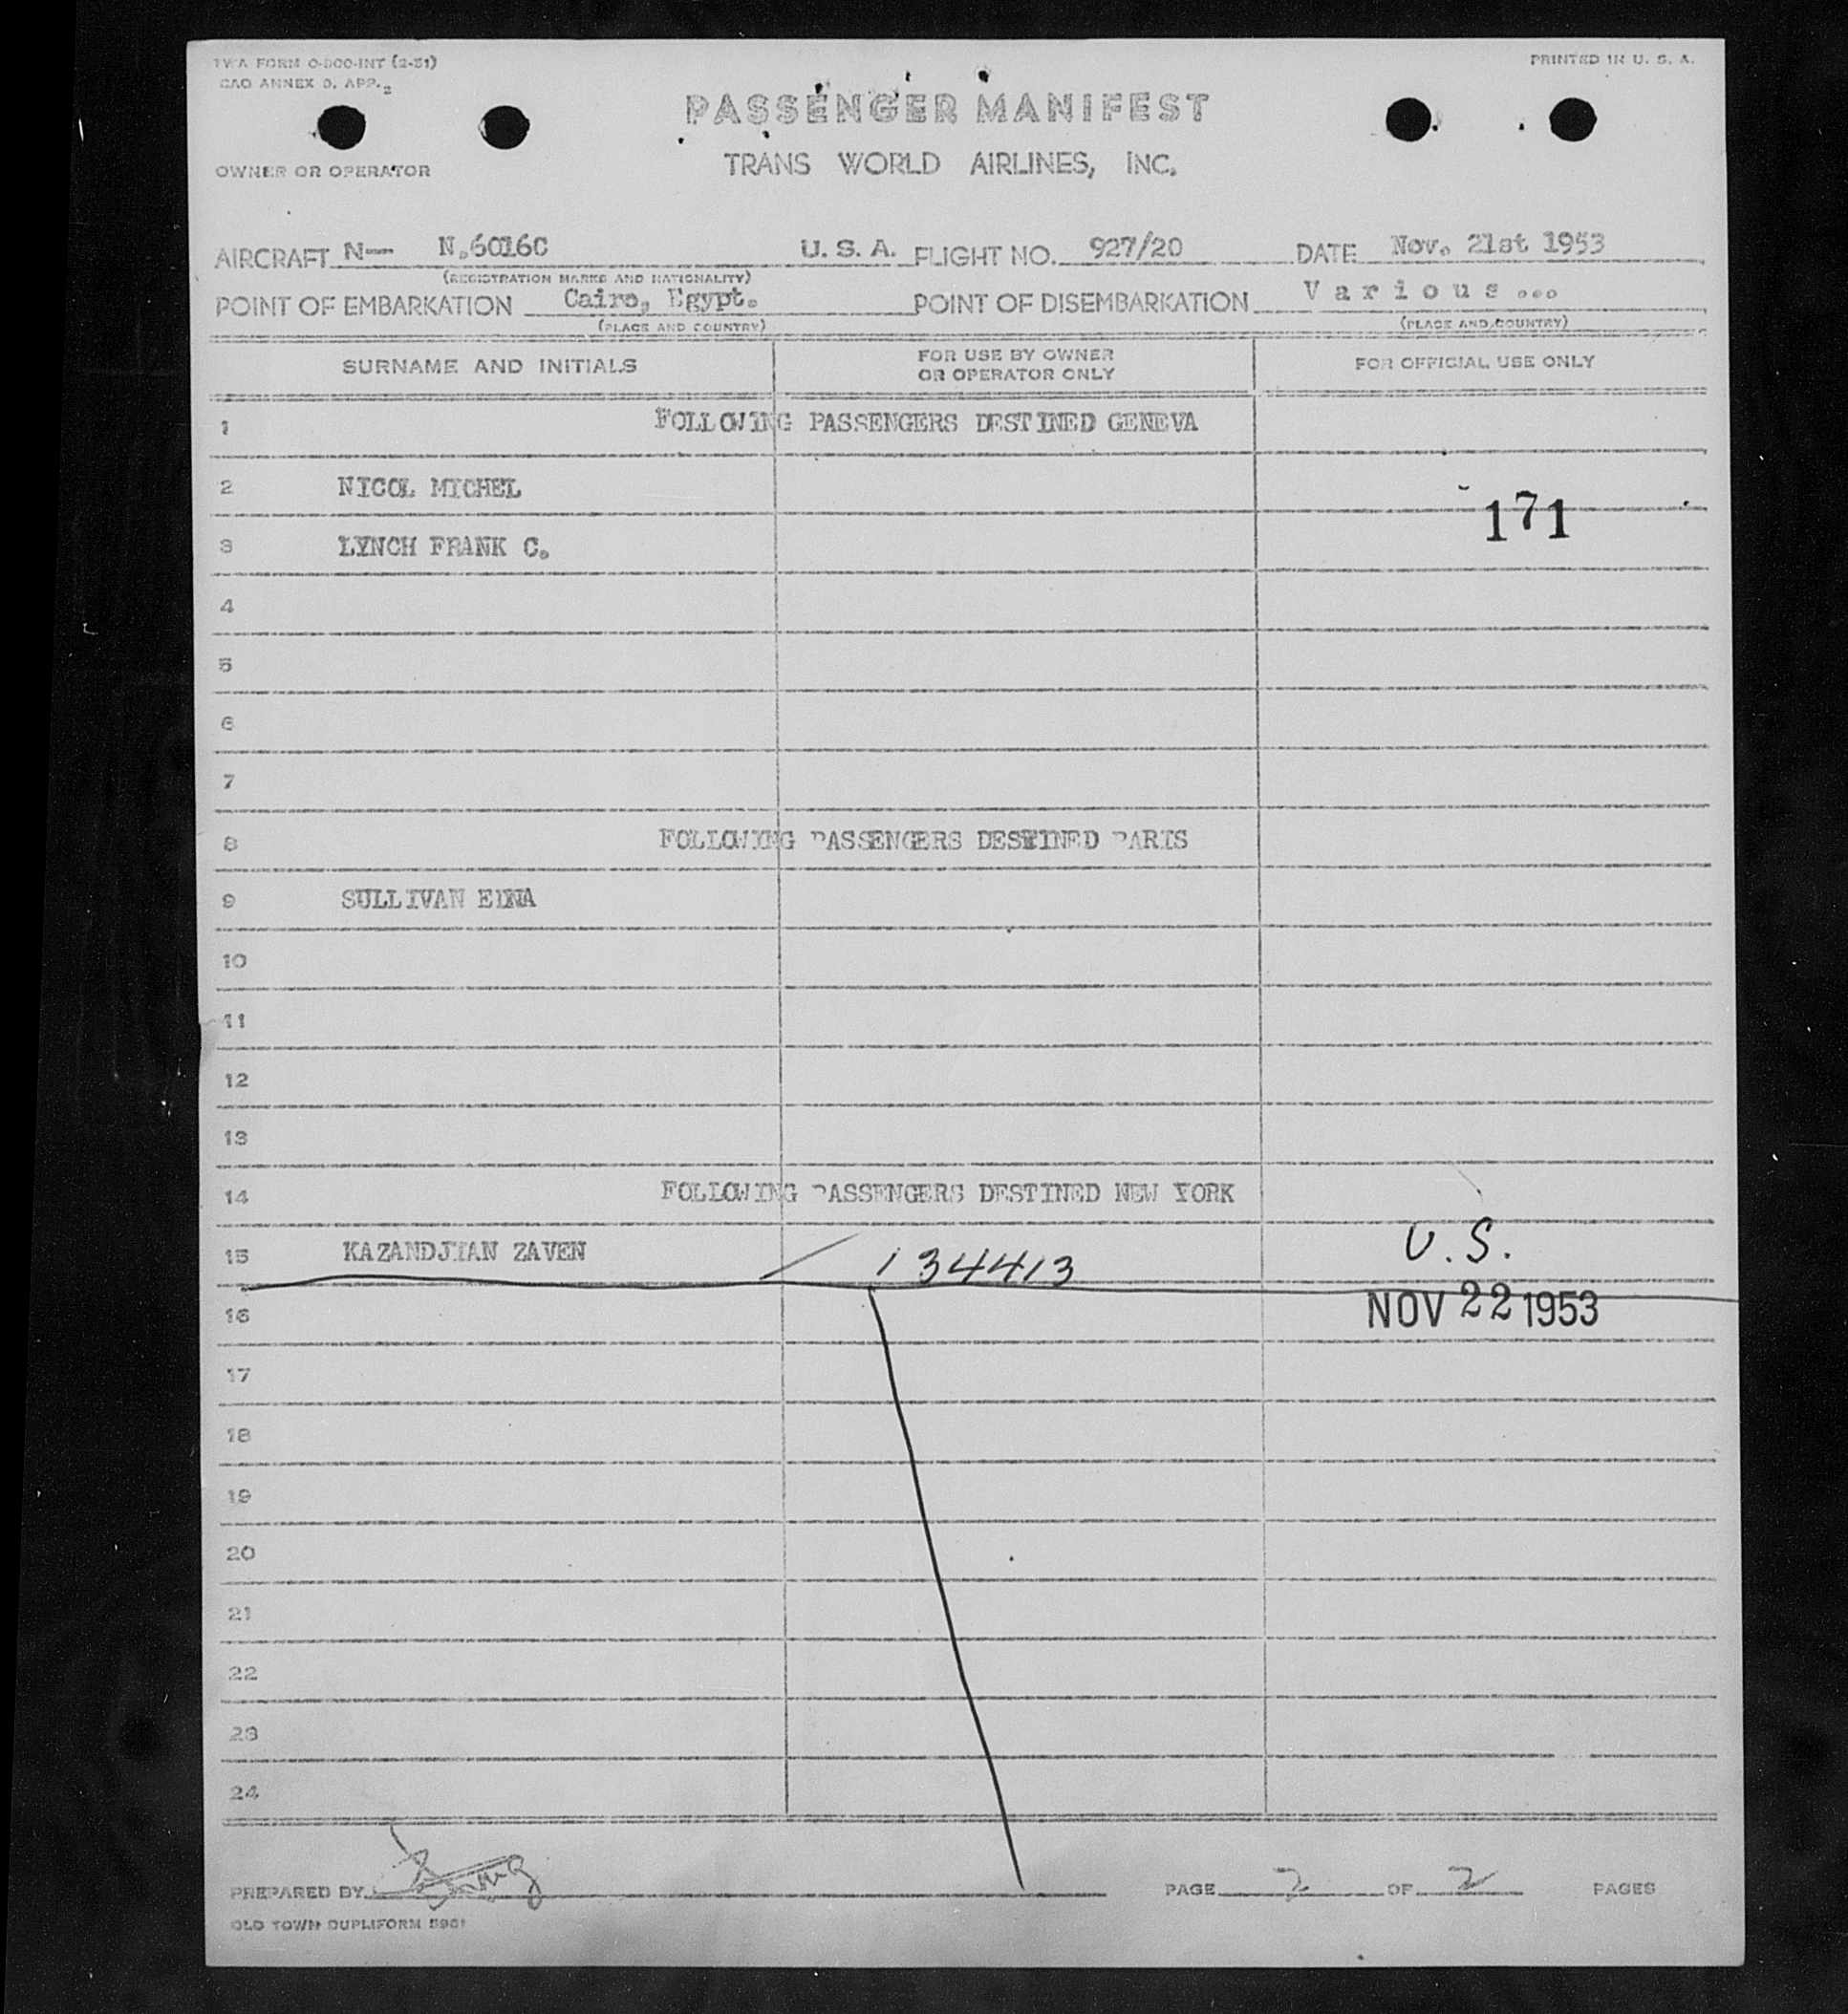 TWA FORM O-800-INT (2-51)
PRINTED IN U. S. A.
CAO ANNEX 9, APP. 2
PASSENGER MANIFEST
OWNER OR OPERATOR
TRANS WORLD AIRLINES, INC.
AIRCRAFT N— N.6016C U. S. A. FLIGHT NO. 927/20 DATE Nov. 21st 1953
(REGISTRATION MARKS AND NATIONALITY)
POINT OF EMBARKATION Cairo, Egypt. POINT OF DISEMBARKATION Various...
(PLACE AND COUNTRY) (PLACE AND COUNTRY)
SURNAME AND INITIALS FOR USE BY OWNER OR OPERATOR ONLY FOR OFFICIAL USE ONLY
1 FOLLOWING PASSENGERS DESTINED GENEVA
2 NICOL MICHEL
171
3 LYNCH FRANK C.
4
5
6
7
8 FOLLOWING PASSENGERS DESTINED PARIS
9 SULLIVAN EDNA
10
11
12
13
14 FOLLOWING PASSENGERS DESTINED NEW YORK
15 KAZANDJIAN ZAVEN / 134413 U.S.
16 NOV 22 1953
17
18
19
20
21
22
23
24
PREPARED BY PAGE 2 OF 2 PAGES
OLD TOWN DUPLIFORM